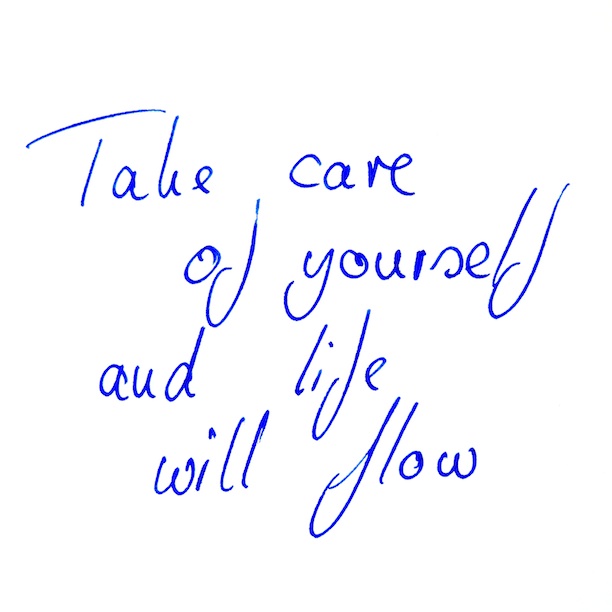 Take care
of yourself
and life
will flow